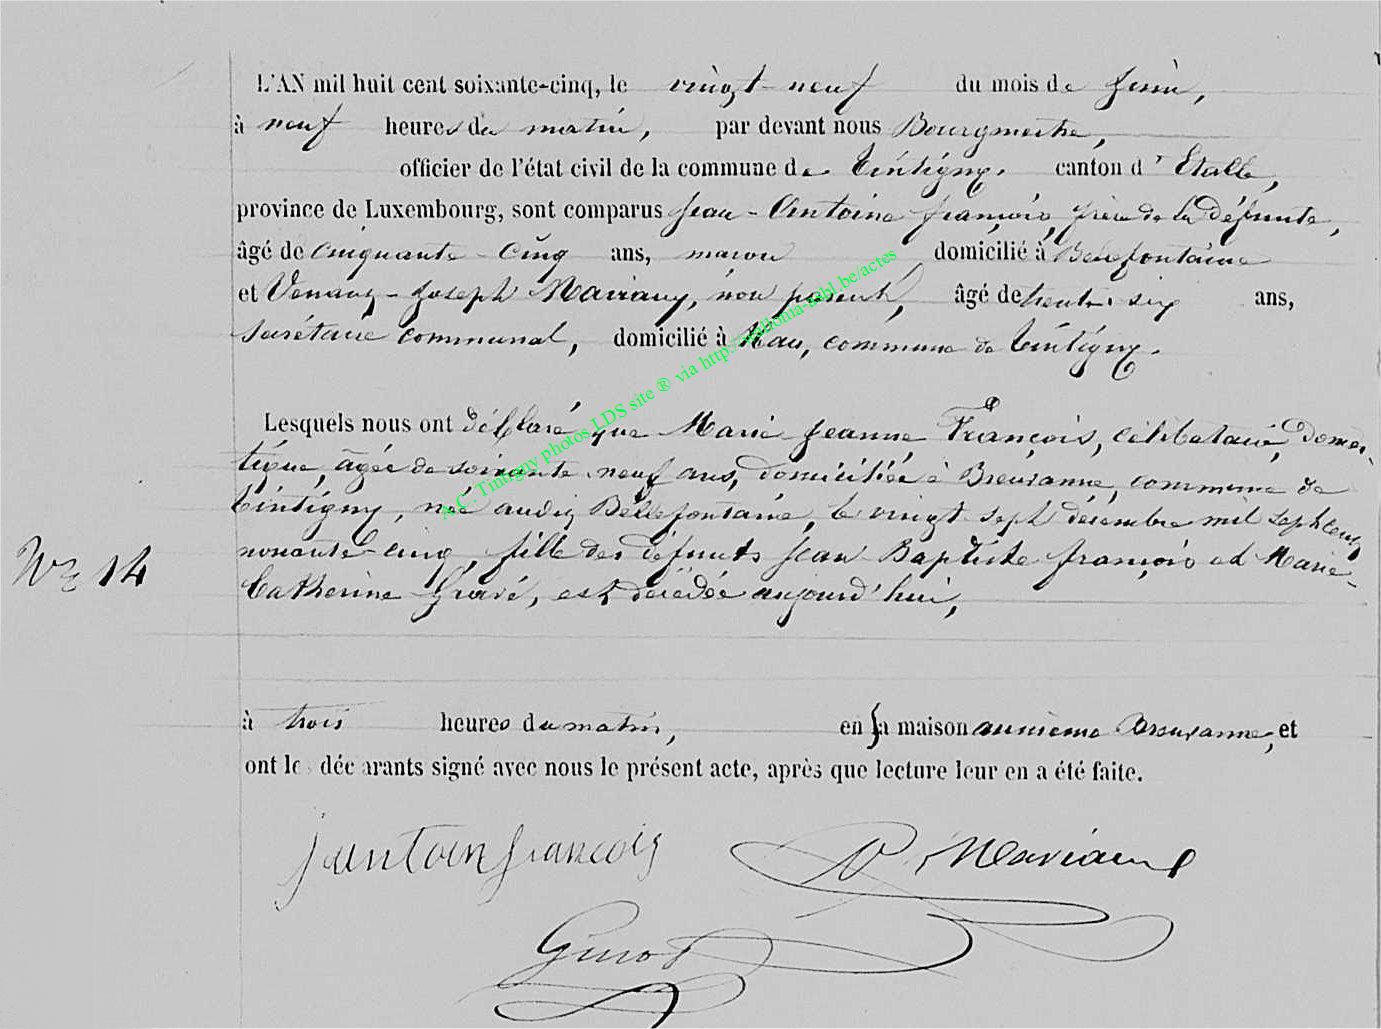 L'AN mil huit cent soixante-cinq, le vingt neuf du mois de Juin,
à neuf heures du matin, par devant nous Bourgmestre,
officier de l'état civil de la commune de Tintigny, canton d'Etalle,
province de Luxembourg, sont comparus Jean-Antoine françois, frère de la défunte,
âgé de Cinquante-Cinq ans, maçon domicilié à Bellefontaine
et Venanz-Joseph Maviany, non parent, âgé de trente six ans,
Secrétaire communal, domicilié à Han, commune de Tintigny.
Lesquels nous ont déclaré que Marie Jeanne François, célibataire, domes-
tique, âgée de soixante neuf ans, domiciliée à Breuvanne, commune de
Tintigny, née audit Bellefontaine, le vingt sept décembre mil sept cent
nonante-cinq, fille des défunts Jean Baptiste françois et Marie-
Catherine Gravé, est décédée aujourd'hui,
N° 14
à trois heures du matin, en sa maison au même Breuvanne, et
ont les déclarants signé avec nous le présent acte, après que lecture leur en a été faite.
jantoin francois V. Maviane
A.C. Tintigny photos LDS site ® via http://wallonia-asbl.be/actes